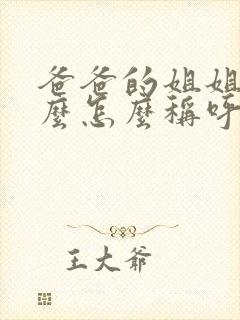 爸爸的姐姐
麼怎麼稱呼
王大爺